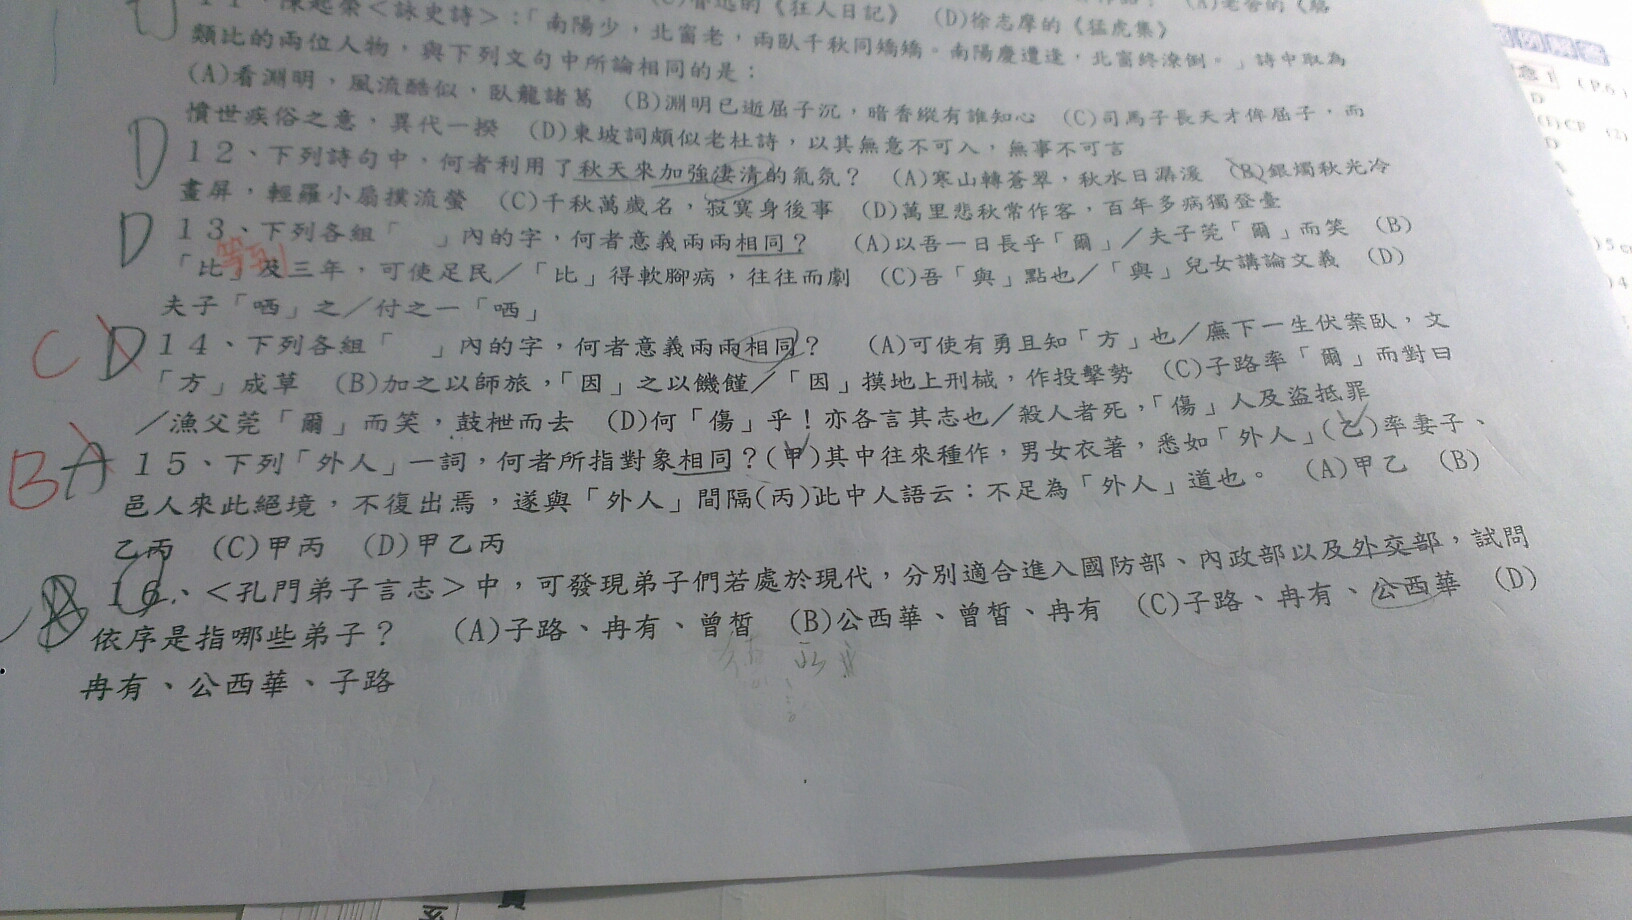 11、陳起榮<詠史詩>：「南陽少，北窗老，兩臥千秋同矯矯。南陽慶遭逢，北窗終潦倒。」詩中取為
的《狂人日記》 (D)徐志摩的《猛虎集》
類比的兩位人物，與下列文句中所論相同的是：
(A)看淵明，風流酷似，臥龍諸葛 (B)淵明已逝屈子沉，暗香縱有誰知心 (C)司馬子長天才侔屈子，而
憤世疾俗之意，異代一揆 (D)東坡詞頗似老杜詩，以其無意不可入，無事不可言
D
12、下列詩句中，何者利用了秋天來加強淒清的氣氛？ (A)寒山轉蒼翠，秋水日潺湲 (B)銀燭秋光冷
畫屏，輕羅小扇撲流螢 (C)千秋萬歲名，寂寞身後事 (D)萬里悲秋常作客，百年多病獨登臺
D
13、下列各組「 」內的字，何者意義兩兩相同？ (A)以吾一日長乎「爾」／夫子莞「爾」而笑 (B)
等到
「比」及三年，可使足民／「比」得軟腳病，往往而劇 (C)吾「與」點也／「與」兒女講論文義 (D)
夫子「哂」之／付之一「哂」
C D
14、下列各組「 」內的字，何者意義兩兩相同？ (A)可使有勇且知「方」也／廡下一生伏案臥，文
「方」成草 (B)加之以師旅，「因」之以饑饉／「因」摸地上刑械，作投擊勢 (C)子路率「爾」而對曰
／漁父莞「爾」而笑，鼓枻而去 (D)何「傷」乎！亦各言其志也／殺人者死，「傷」人及盜抵罪
B A
15、下列「外人」一詞，何者所指對象相同？(甲)其中往來種作，男女衣著，悉如「外人」(乙)率妻子、
邑人來此絕境，不復出焉，遂與「外人」間隔(丙)此中人語云：不足為「外人」道也。 (A)甲乙 (B)
乙丙 (C)甲丙 (D)甲乙丙
16、<孔門弟子言志>中，可發現弟子們若處於現代，分別適合進入國防部、內政部以及外交部，試問
依序是指哪些弟子？ (A)子路、冉有、曾皙 (B)公西華、曾皙、冉有 (C)子路、冉有、公西華 (D)
冉有、公西華、子路